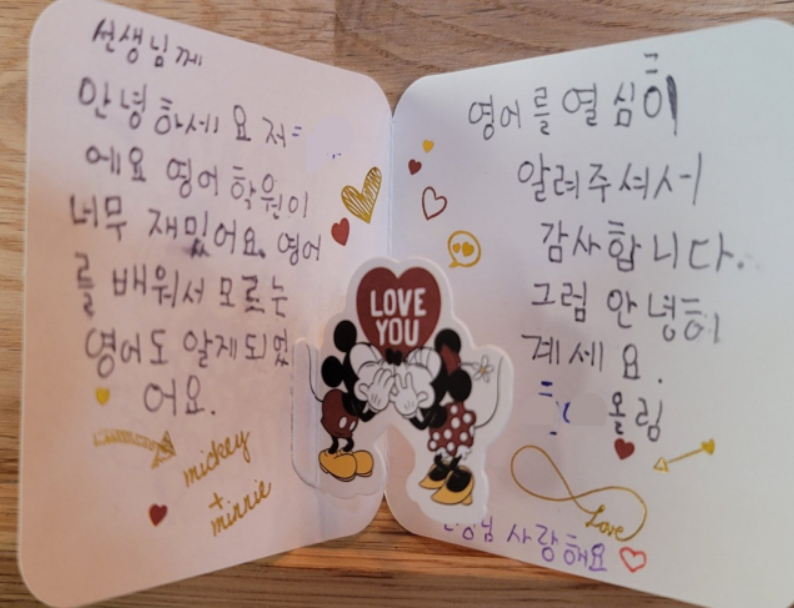 선생님께
안녕하세요 저는
에요 영어 학원이
너무 재밌어요. 영어
를 배워서 모르는
영어도 알게되었
어요.
mickey
+
minnie
LOVE
YOU
영어를 열심히
알려주셔서
감사합니다.
그럼 안녕히
계세요.
올림
Love
사랑해요